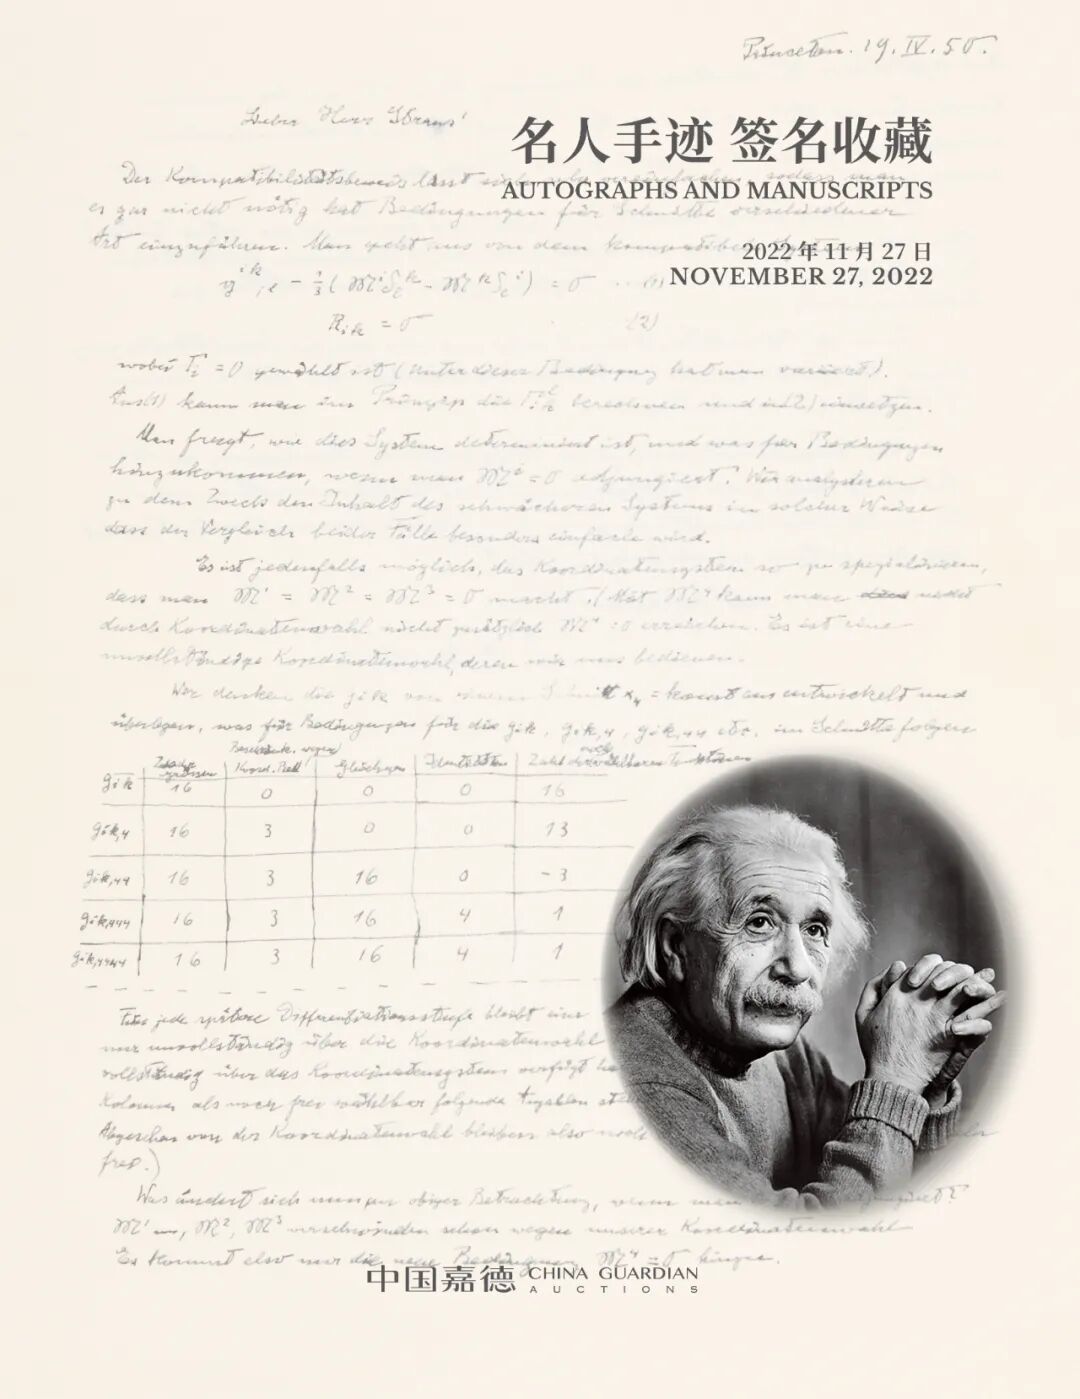 Princeton. 19. IV. 50.
Lieber Herr Straus!
名人手迹 签名收藏
AUTOGRAPHS AND MANUSCRIPTS
Der Kompatibilitätsbeweis lässt sich sehr vereinfachen, sodass man
es gar nicht nötig hat Bedingungen für Schnitte verschiedener
Art einzuführen. Man geht aus von dem
2022 年 11 月 27 日
NOVEMBER 27, 2022
R i k = 0 (2)
wobei = 0 gewählt ist (unter dieser Bedingung hat man variiert).
Aus (1) kann man im Prinzip die berechnen und in (2) einsetzen.
Man fragt, wie dies System determiniert ist, und was für Bedingungen
hinzukommen, wenn man = 0 adjungiert. Wir analysieren
zu dem Zweck den Inhalt des schwächeren Systems in solcher Weise
dass der Vergleich beider Fälle besonders einfach wird.
Es ist jedenfalls möglich, das Koordinatensystem so zu spezialisieren,
dass man = = = 0 macht. (Mit kann man nicht
durch Koordinatenwahl nicht zusätzlich = 0 erreichen. Es ist eine
unvollständige Koordinatenwahl, deren wir uns bedienen.
Wir denken die gik von einem Schnitt x4 = konst aus entwickelt und
überlegen, was für Bedingungen für die gik, gik,4, gik,44 etc. im Schnitte folgen
Koord. Gleichungen Identitäten Zahl der
gik 16 0 0 0 16
gik,4 16 3 0 0 13
gik,44 16 3 16 0 -3
gik,444 16 3 16 4 1
gik,4444 16 3 16 4 1
Für jede spätere Differentiationsstufe bleibt eine
nur unvollständig über die Koordinatenwahl
vollständig über das Koordinatensystem verfügt
Kolonne als noch frei wählbar folgende
Abgesehen von der Koordinatenwahl bleiben also noch
frei.)
Was ändert sich nun an obiger Betrachtung, wenn man
verschwinden schon wegen unserer Koordinatenwahl
Es kommt also nur die neue Bedingung = 0 hinzu.
中国嘉德 CHINA GUARDIAN
AUCTIONS